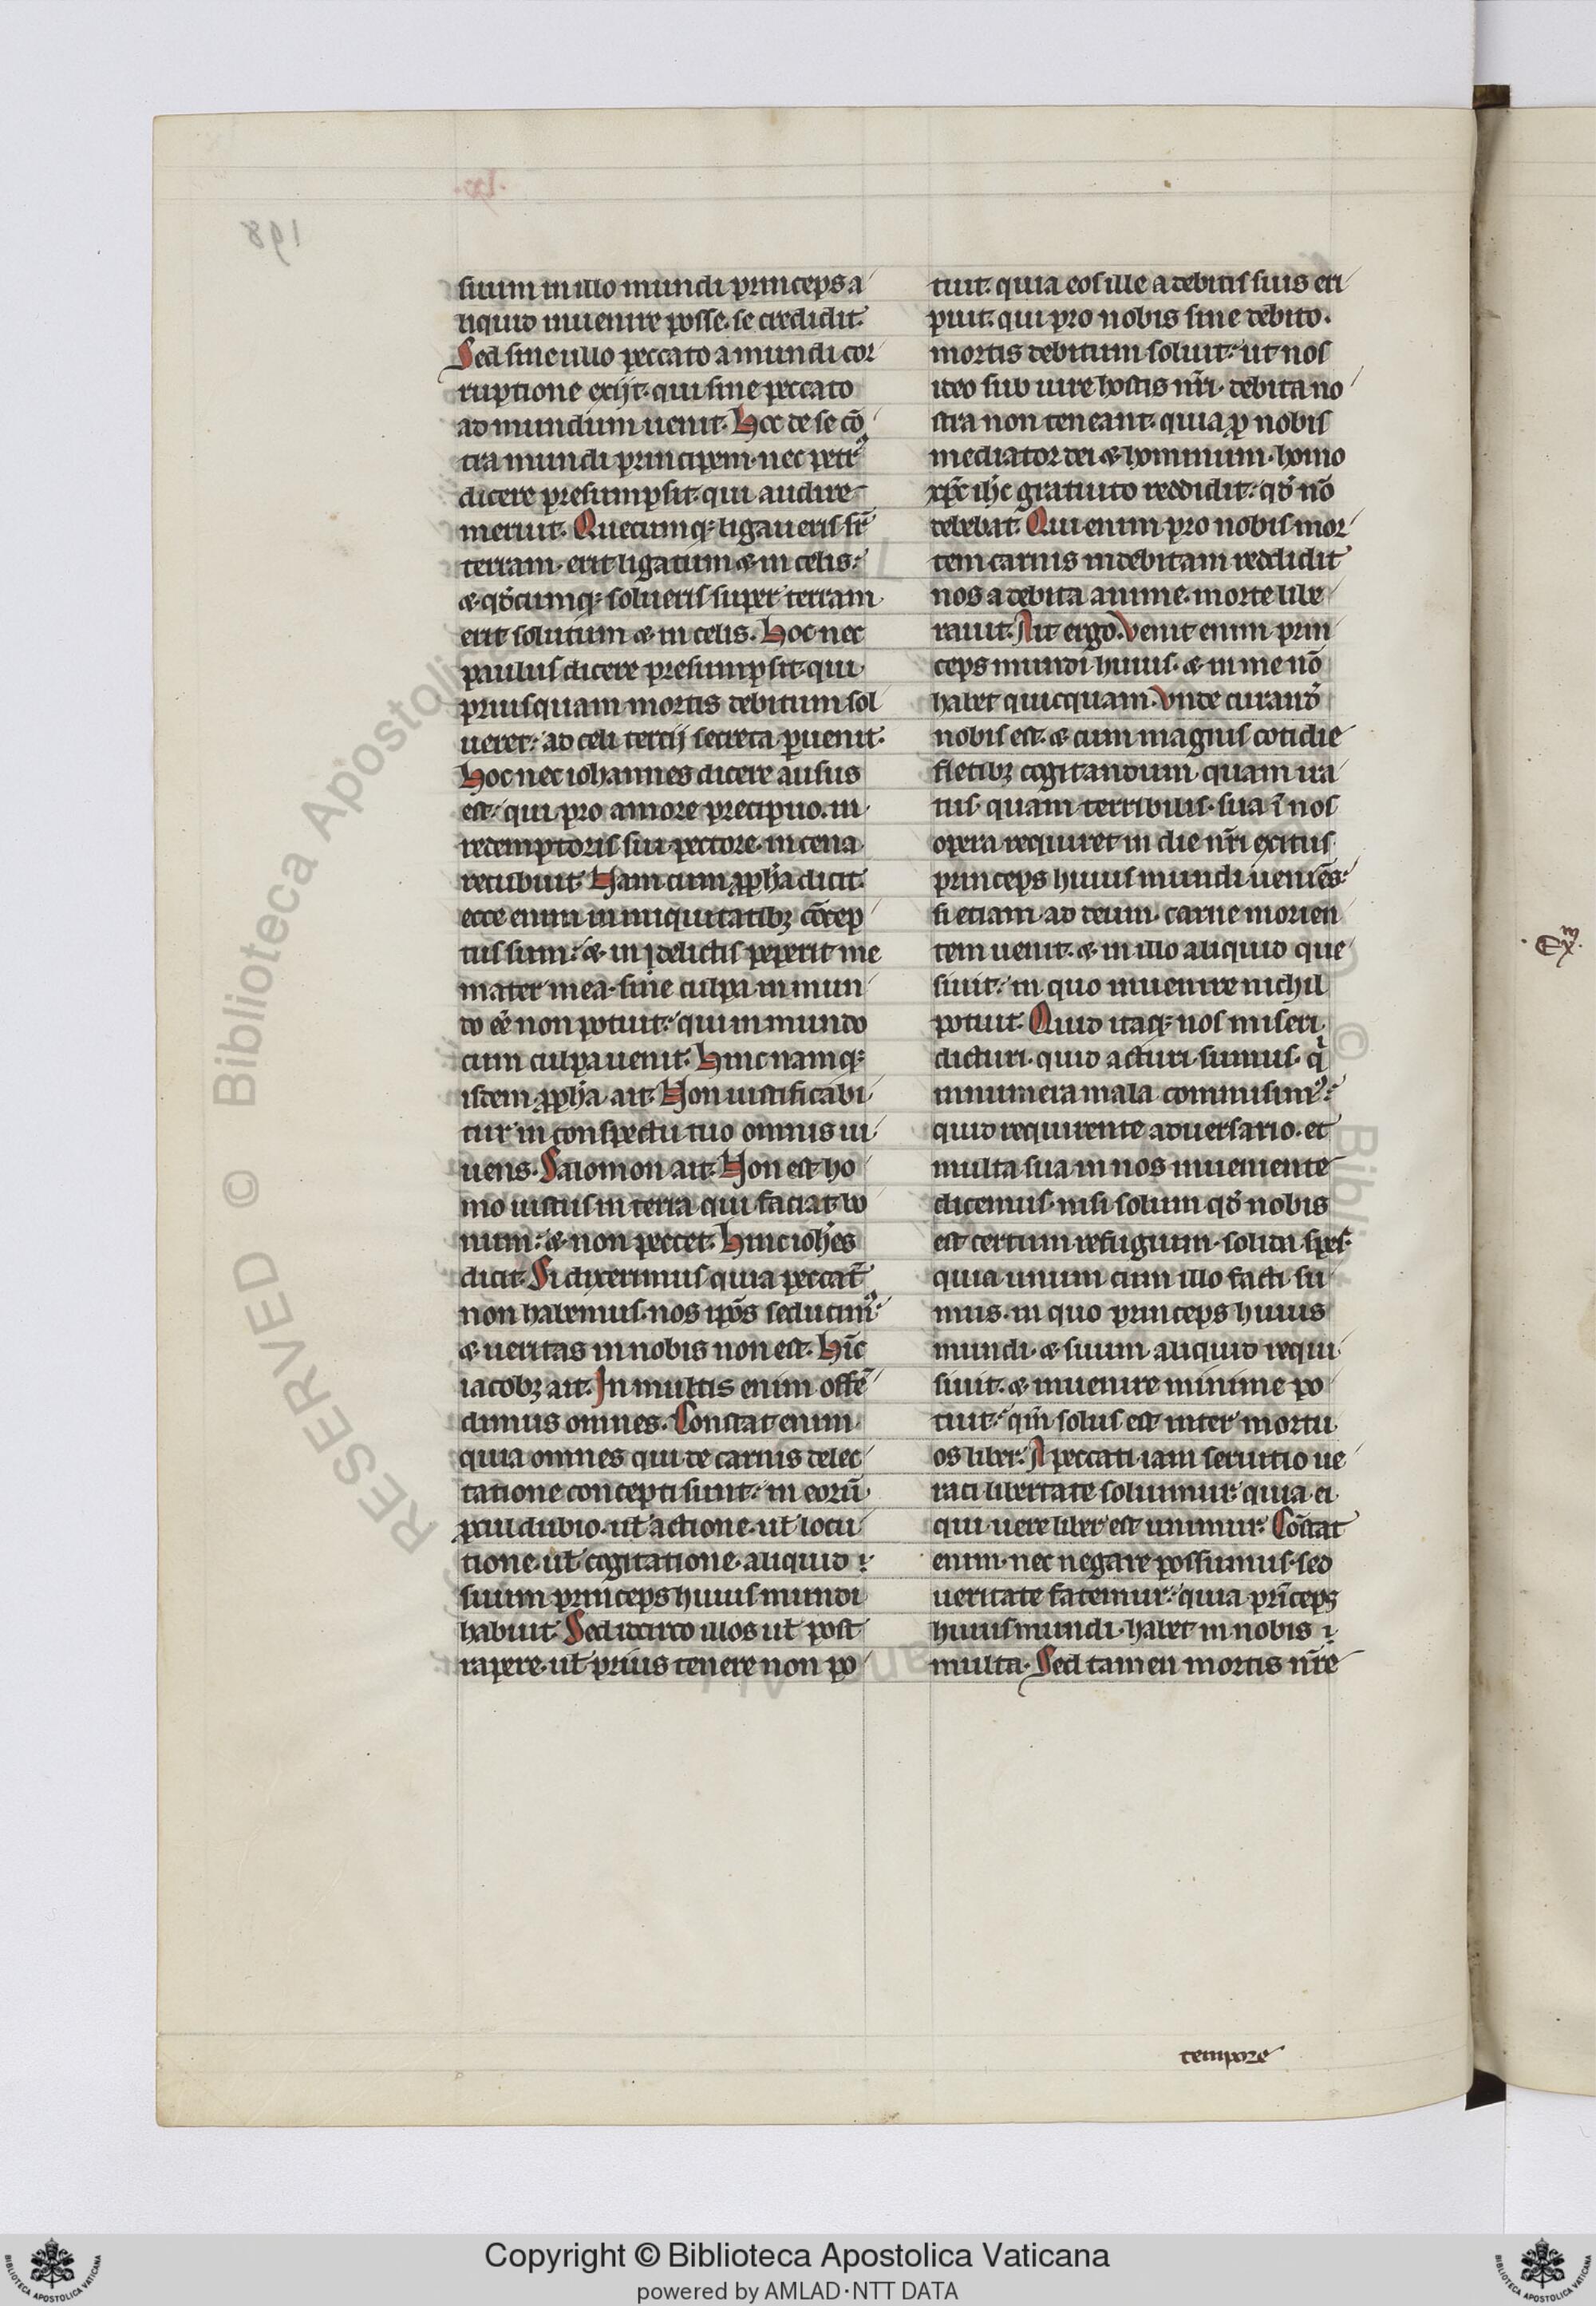 suum in illo mundi princeps a
liquid inuenire posse se credidit.
Sed sine ullo peccato a mundi cor
ruptione exijt. qui sine peccato
ad mundum uenit. Hoc de se cō
tra mundi principem. nec petrꝰ
dicere presumpsit. qui audire
meruit. Quecumq; ligaueris sr̄
terram. erit ligatum & in celis:
& qd̓cumq; solueris super terram
erit solutum & in celis. Hoc nec
paulus dicere presumpsit. qui
priusquam mortis debitum sol
ueret: ad celi tercij secreta ꝑuenit.
Hoc nec iohannes dicere ausus
est: qui pro amore precipuo. in
redemptoris sui pectore. in cena
recubuit. Nam cum ꝓph̓a dicit.
ecce enim in iniquitatibꝫ cōcep
tus sum: & in delictis peperit me
mater mea. sine culpa in mun
do eē non potuit: qui in mundo
cum culpa uenit. Hinc namq;
idem ꝓph̓a ait. Non iustificabi
tur in conspectu tuo omnis ui
uens. Salomon ait. Non est ho
mo iustus in terra qui faciat bo
num: & non peccet. Hinc ioh̓es
dicit. Si dixerimus quia peccat̄
non habemus. nos ip̄os seducimꝰ:
& ueritas in nobis non est. Hīc
iacobꝫ ait. In multis enim offē
dimus omnes. Constat enim
quia omnes qui de carnis delec
tatione concepti sunt: in eorū
ꝓcul dubio. ul̓ actione. ul̓ locu
tione. ul̓ cogitatione. aliquid
suum princeps huius mundi
habuit. Sed idcirco illos ul̓ post
rapere. ul̓ prius tenere non po
tuit. quia eos ille a debitis suis eri
puit. qui pro nobis sine debito.
mortis debitum soluit: ut nos
ideo sub iure hostis nr̄i. debita no
stra non teneant. quia ꝓ nobis
mediator dei & hominum. homo
xp̄c ih̄c gratuito reddidit: qd̓ nō
debebat. Qui enim pro nobis mor
tem carnis indebitam reddidit
nos a debita anime. morte libe
rauit. Ait ergo. Venit enim prin
ceps mundi huius. & in me nō
habet quicquam. Vnde curand̓
nobis est. & cum magnis cotidie
fletibꝫ cogitandum. quam ra
tus. quam terribilis. sua ī nos
opera requiret in die nr̄i exitus
princeps huius mundi ueniēs:
si etiam ad deum. carne morien
tem uenit. & in illo aliquid que
siuit: in quo inuenire nichil
potuit. Quid itaq; nos miseri
dicturi. quid acturi sumus. qͥ
innumera mala commisimꝰ:
quid requirente aduersario. et
multa sua in nos inueniente
dicemus. nisi solum qd̓ nobis
est certum refugium. solida spes.
quia unum cum illo facti su
mus. in quo princeps huius
mundi. & suum aliquid requi
siuit. & inuenire minime po
tuit: qm̄ solus est inter mortu
os liber. A peccati iam seruitio ue
raci libertate soluimur. quia ei
qui uere liber est unimur. Cōstat
enim. nec negare possumus. sed
ueritate fatemur: quia prīceps
huius mundi. habet in nobis
multa. Sed tamen mortis nr̄e
tempore
198
Copyright © Biblioteca Apostolica Vaticana
powered by AMLAD·NTT DATA
RESERVED © Biblioteca Apostolica